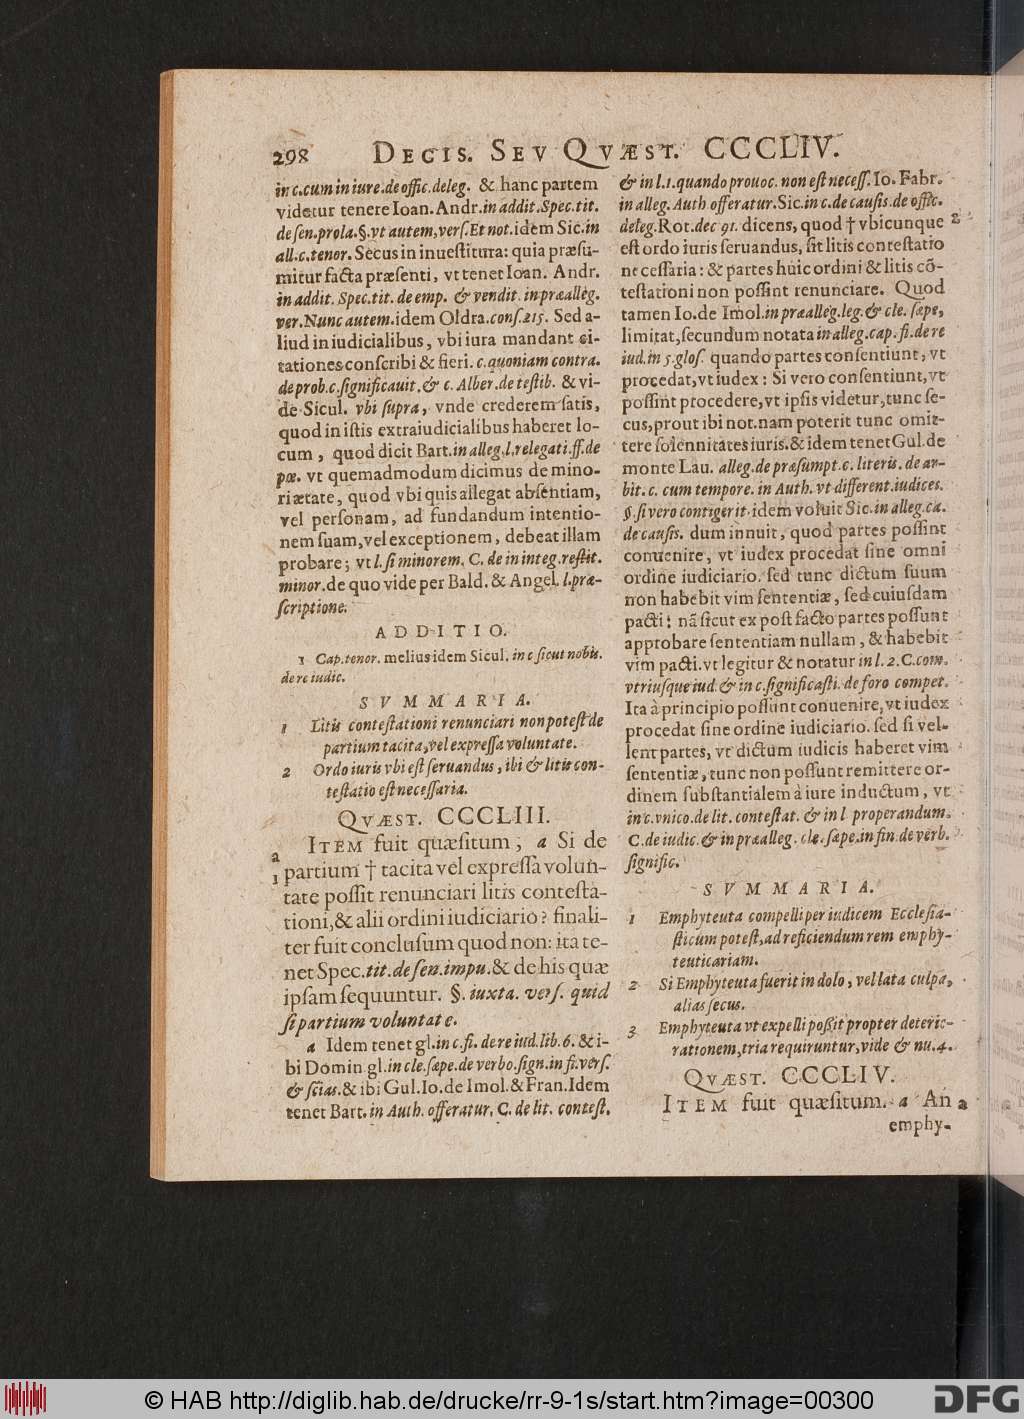 298 DECIS. SEV QVÆST. CCCLIV.
in c. cum in iure. de offic. deleg. & hanc partem
videtur tenere Ioan. Andr. in addit. Spec. tit.
de sen. prola. §. vt autem, vers. Et not. idem Sic. in
all. c. tenor. Secus in inuestitura: quia præsu-
mitur facta præsenti, vt tenet Ioan. Andr.
in addit. Spec. tit. de emp. & vendit. in præalleg.
ver. Nunc autem. idem Oldra. cons. 215. Sed a-
liud in iudicialibus, vbi iura mandant ci-
tationes conscribi & fieri. c. quoniam contra.
de prob. c. significauit. & c. Alber. de testib. & vi-
de Sicul. vbi supra, vnde crederem satis,
quod in istis extraiudicialibus haberet lo-
cum, quod dicit Bart. in alleg. l. relegati. ff. de
pœ. vt quemadmodum dicimus de mino-
ri ætate, quod vbi quis allegat absentiam,
vel personam, ad fundandum intentio-
nem suam, vel exceptionem, debeat illam
probare; vt l. si minorem. C. de in integ. restit.
minor. de quo vide per Bald. & Angel. l. præ-
scriptione.
ADDITIO.
1 Cap. tenor. melius idem Sicul. in c. sicut nobis.
de re iudic.
SVMMARIA.
1 Litis contestationi renunciari non potest de
partium tacita, vel expressa voluntate.
2 Ordo iuris vbi est seruandus, ibi & litis con-
testatio est necessaria.
QVÆST. CCCLIII.
ITEM fuit quæsitum, a Si de
a
1 partium † tacita vel expressa volun-
tate possit renunciari litis contesta-
tioni, & alii ordini iudiciario? finali-
ter fuit conclusum quod non: ita te-
net Spec. tit. de sen. impu. & de his quæ
ipsam sequuntur. §. iuxta. vers. quid
si partium voluntate.
a Idem tenet gl. in c. fi. de re iud. lib. 6. & i-
bi Domin. gl. in cle. sæpe. de verbo. sign. in fi. vers.
& scias. & ibi Gul. Io. de Imol. & Fran. Idem
tenet Bart. in Auth. offeratur. C. de lit. contest.
& in l. 1. quando prouoc. non est necess. Io. Fabr.
in alleg. Auth offeratur. Sic. in c. de causis. de offic.
deleg. Rot. dec 91. dicens, quod † vbicunque 2
est ordo iuris seruandus, sit litis contestatio
necessaria: & partes huic ordini & litis cõ-
testationi non possint renunciare. Quod
tamen Io. de Imol. in præalleg. leg. & cle. sæpe,
limitat, secundum notata in alleg. cap. fi. de re
iud. in 5. glos. quando partes consentiunt, vt
procedat, vt iudex: Si vero consentiunt, vt
possint procedere, vt ipsis videtur, tunc se-
cus, prout ibi not. nam poterit tunc omit-
tere solennitates iuris. & idem tenet Gul. de
monte Lau. alleg. de præsumpt. c. literis. de ar-
bit. c. cum tempore. in Auth. vt different. iudices.
§. si vero contigerit. idem voluit Sic. in alleg. ca.
de causis. dum innuit, quod partes possint
conuenire, vt iudex procedat sine omni
ordine iudiciario. sed tunc dictum suum
non habebit vim sententiæ, sed cuiusdam
pacti: nã sicut ex post facto partes possunt
approbare sententiam nullam, & habebit
vim pacti. vt legitur & notatur in l. 2. C. com.
vtriusque iud. & in c. significasti. de foro compet.
Ita à principio possunt conuenire, vt iudex
procedat sine ordine iudiciario. sed si vel-
lent partes, vt dictum iudicis haberet vim
sententiæ, tunc non possunt remittere or-
dinem substantialem à iure inductum, vt
in c. vnico. de lit. contestat. & in l properandum.
C. de iudic. & in præalleg. cle. sæpe. in fin. de verb.
signific.
SVMMARIA.
1 Emphyteuta compelli per iudicem Ecclesia-
sticum potest, ad reficiendum rem emphy-
teuticariam.
2 Si Emphyteuta fuerit in dolo, vel lata culpa,
alias secus.
3 Emphyteuta vt expelli possit propter deterio-
rationem, tria requiruntur, vide & nu. 4.
QVÆST. CCCLIV.
ITEM fuit quæsitum. a An a
emphy-
© HAB http://diglib.hab.de/drucke/rr-9-1s/start.htm?image=00300
DFG